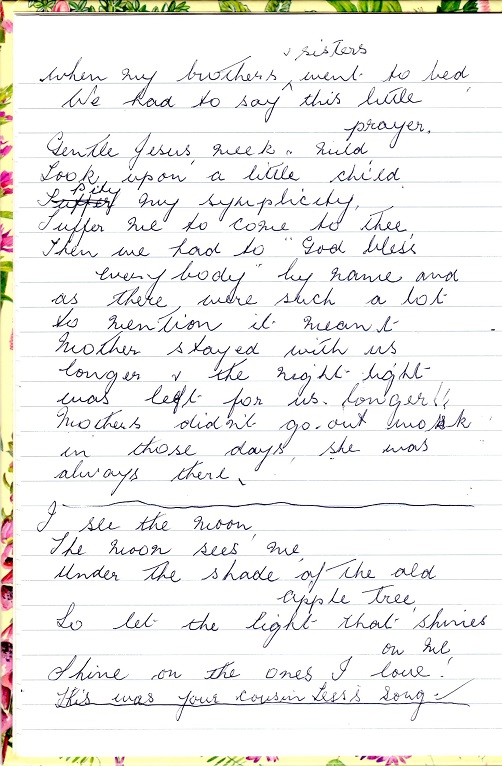 when my brothers & sisters went to bed
We had to say this little
prayer.
Gentle Jesus meek & mild
Look upon a little child
Pity my symplicity,
Suffer me to come to thee,
Then we had to "God bless
every body" by name and
as there were such a lot
to mention it meant
Mother stayed with us
longer & the night light
was left for us longer!!
Mothers didn't go out work
in those days, she was
always there.
I see the moon
The moon sees me
Under the shade of the old
apple tree
So let the light that shines
on me
Shine on the ones I love!
This was your cousin Less's song.